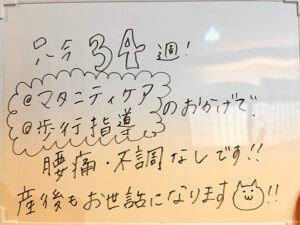 只今34週!
@マタニティケア
@歩行指導
のおかげで!
腰痛・不調なしです!!
産後もお世話になります!!